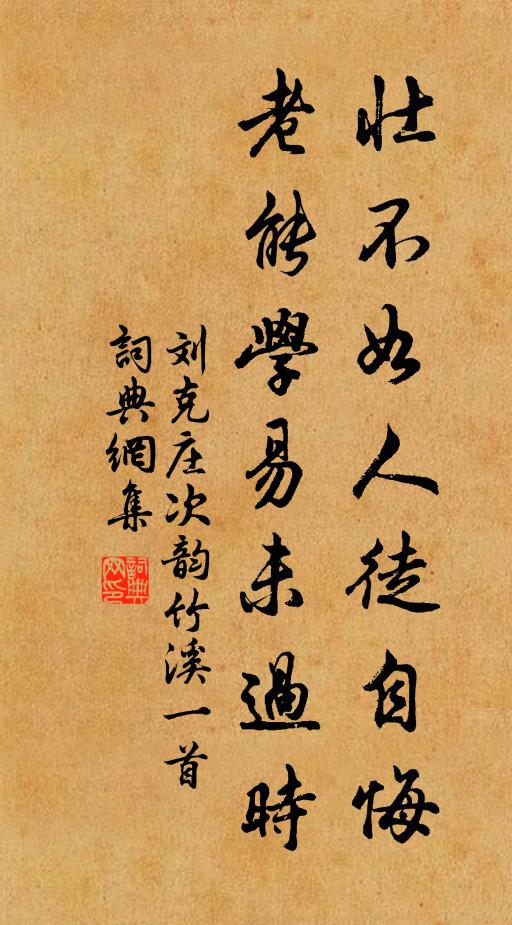 壮不如人徒自悔
老能學易未過時
刘克庄次韵竹溪一首
詞典網集
詞典网印